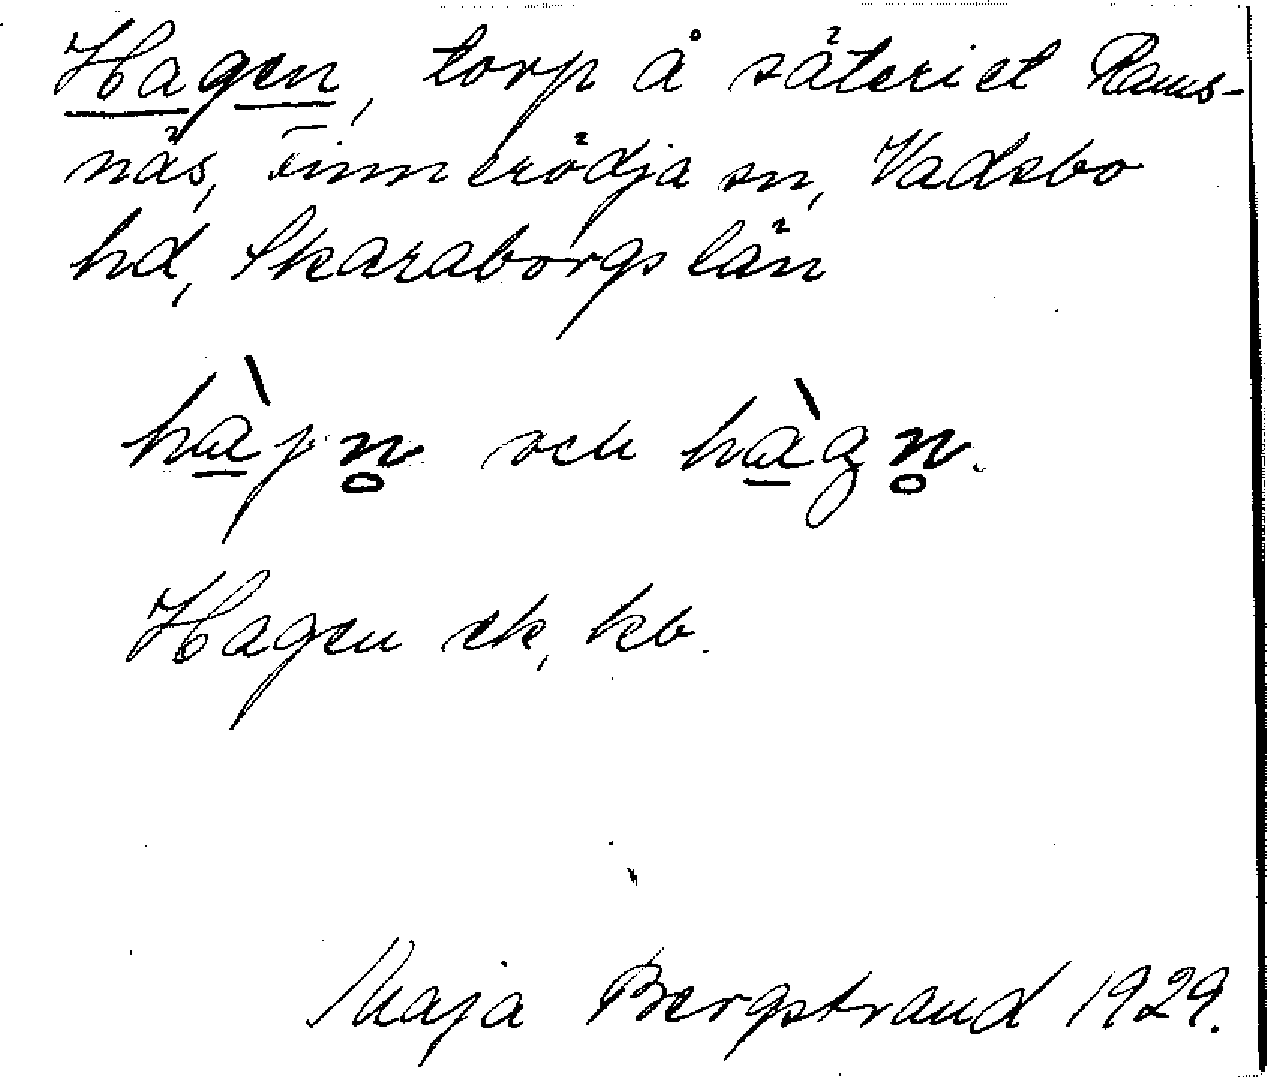 Hagen, torp å säteriet Rams-
näs, Finnerödja sn, Vadsbo
hd, Skaraborgs län
hà̱jn̥ och hà̱gn̥.
Hagen ek, kb.
Maja Bergstrand 1929.